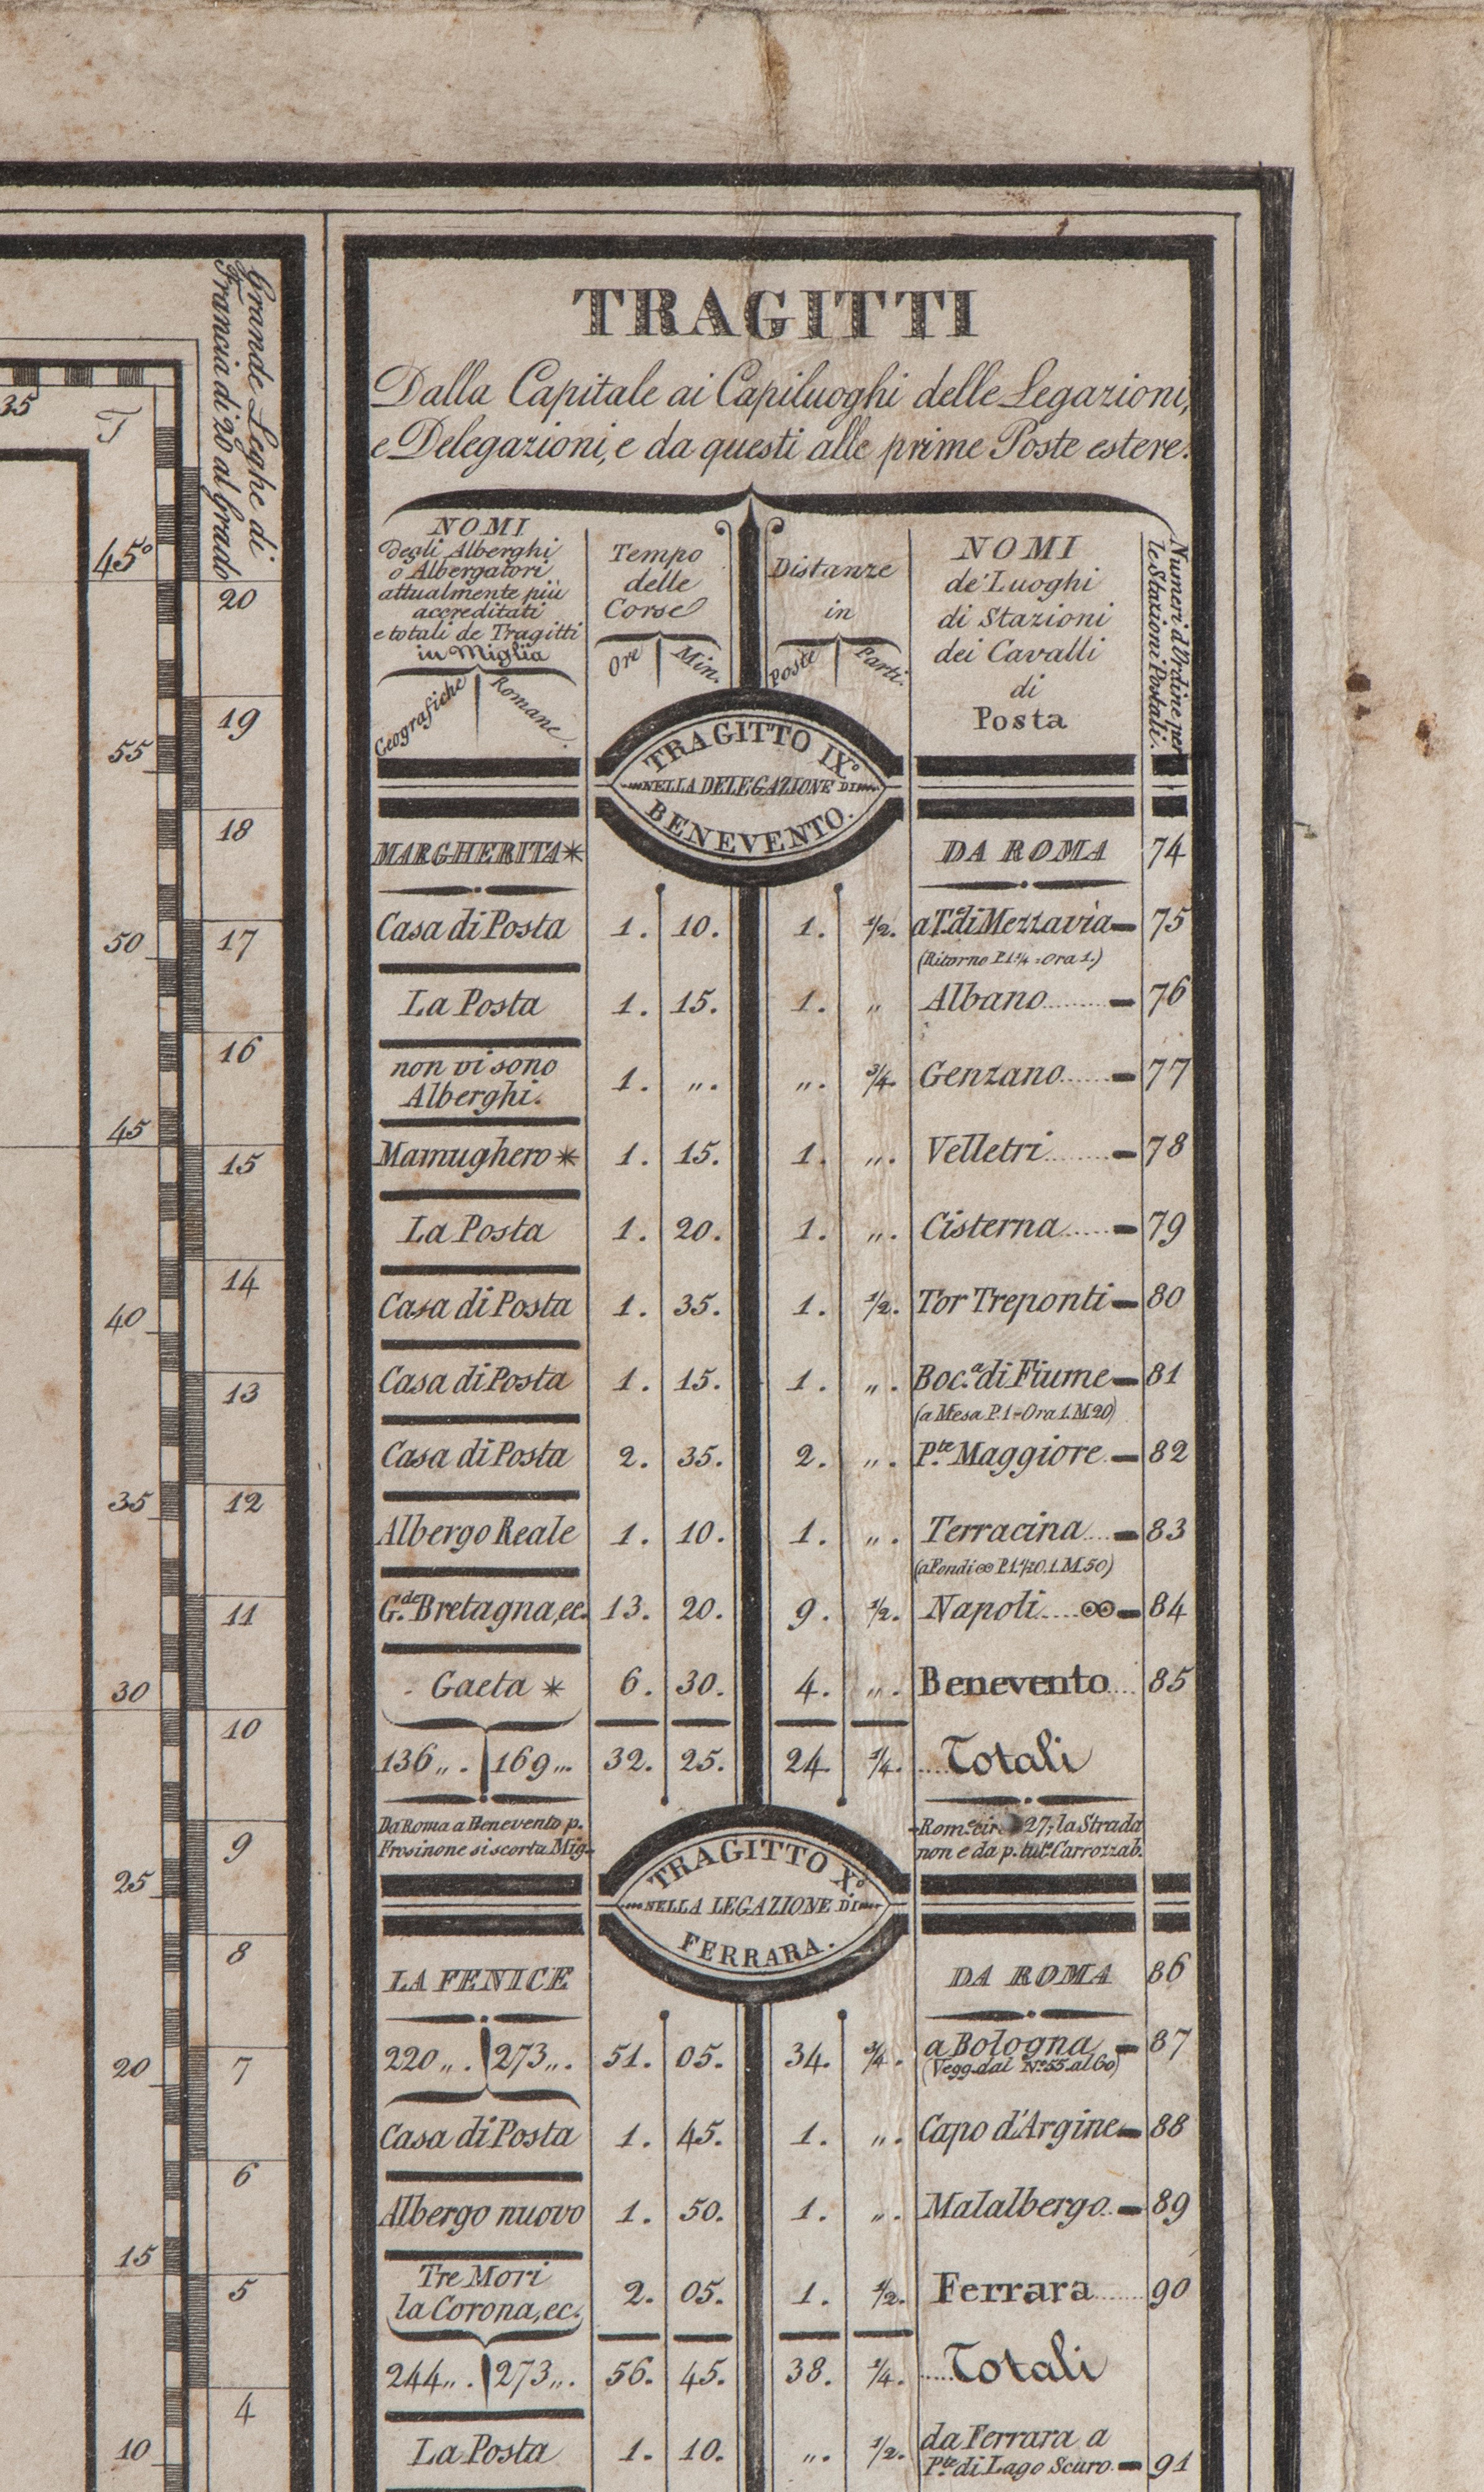 TRAGITTI
Dalla Capitale ai Capiluoghi delle Legazioni,
e Delegazioni, e da questi alle prime Poste estere.
NOMI
degli Alberghi
o Albergatori
attualmente più
accreditati
e totali de Tragitti
in Miglia
Geografiche Romane.
Tempo
delle
Corse
Ore Min.
Distanze
in
Poste Parti.
NOMI
de' Luoghi
di Stazioni
dei Cavalli
di
Posta
Numeri d'Ordine per
le Stazioni Postali.
TRAGITTO IX.º
NELLA DELEGAZIONE DI
BENEVENTO.
MARGHERITA* DA ROMA 74
Casa di Posta 1. 10. 1. 1/2. a T. di Mezzavia 75
(Ritorno P. 1 1/4 = Ora 1.)
La Posta 1. 15. 1. " Albano 76
non vi sono
Alberghi. 1. ". ". 3/4. Genzano 77
Mamughero * 1. 15. 1. ". Velletri 78
La Posta 1. 20. 1. ". Cisterna 79
Casa di Posta 1. 35. 1. 1/2. Tor Treponti 80
Casa di Posta 1. 15. 1. ". Boc.ª di Fiume 81
(a Mesa P. 1 = Ora 1. M. 20)
Casa di Posta 2. 35. 2. ". P.te Maggiore 82
Albergo Reale 1. 10. 1. ". Terracina 83
(a Fondi ∞ P. 1 1/2 O. 1. M. 50)
G.de Bretagna, ec. 13. 20. 9. 1/2. Napoli ∞ 84
Gaeta * 6. 30. 4. ". Benevento 85
136 ". 169 ". 32. 25. 24. 1/4. Totali
Da Roma a Benevento p.
Frosinone si scorta Mig.
Rom.e cir. 27; la Strada
non e da p. tut.º Carrozzab.
TRAGITTO X.º
NELLA LEGAZIONE DI
FERRARA.
LA FENICE DA ROMA 86
220 ". 273 ". 51. 05. 34. 3/4. a Bologna 87
(Vegg. dal N.º 55. al 60)
Casa di Posta 1. 45. 1. ". Capo d'Argine 88
Albergo nuovo 1. 50. 1. ". Malalbergo 89
Tre Mori
la Corona, ec. 2. 05. 1. 1/2. Ferrara 90
244 ". 273 ". 56. 45. 38. 1/4. Totali
La Posta 1. 10. ". 1/2. da Ferrara a
P.te di Lago Scuro 91
Grande Leghe di
Francia di 20 al Grado
35
T
45º
20
19
55
18
50
17
16
45
15
14
40
13
35
12
11
30
10
9
25
8
20
7
6
15
5
4
10